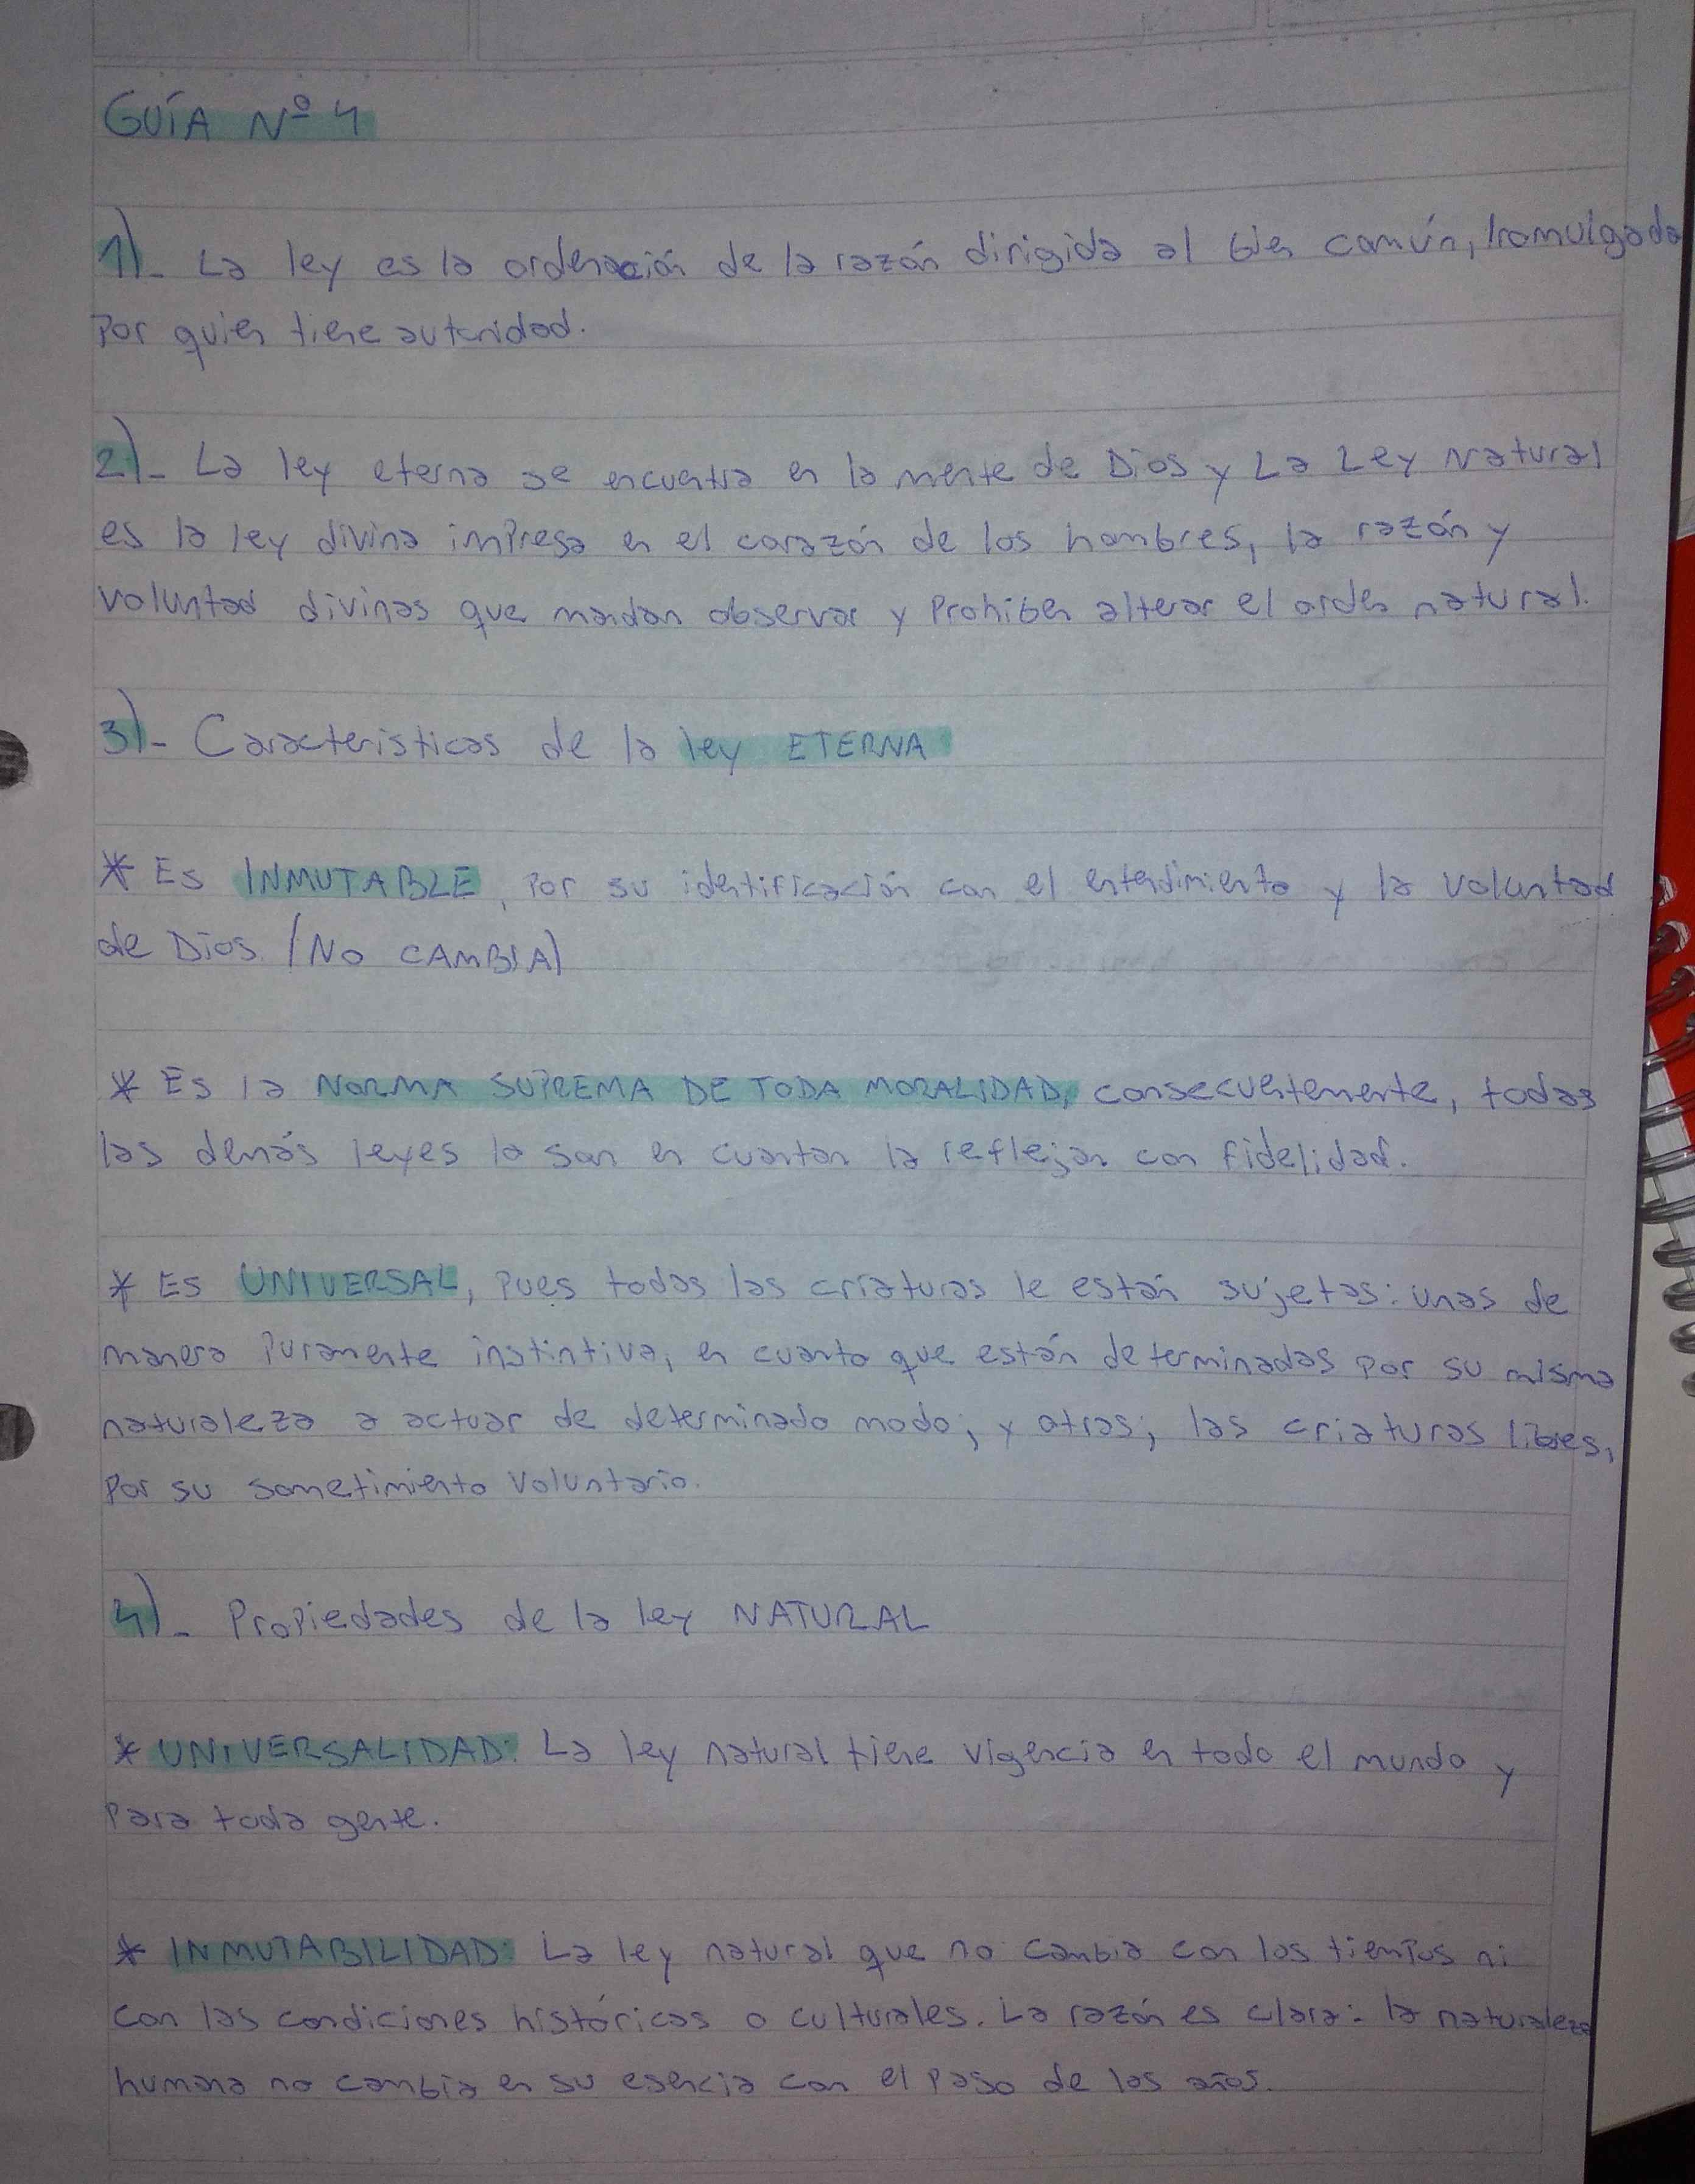 GUÍA Nº 4
1)- La ley es la ordenación de la razón dirigida al bien común, promulgada
por quien tiene autoridad.
2)- La ley eterna se encuentra en la mente de Dios y La Ley Natural
es la ley divina impresa en el corazón de los hombres, la razón y
voluntad divinas que mandan observar y Prohiben alterar el orden natural.
3)- Caracteristicas de la ley ETERNA
* Es INMUTABLE, por su identificación con el entendimiento y la voluntad
de Dios. (NO CAMBIA)
* Es la NORMA SUPREMA DE TODA MORALIDAD, consecuentemente, todas
las demás leyes lo son en cuanton la reflejan con fidelidad.
* Es UNIVERSAL, pues todas las criaturas le están sujetas: unas de
manera puramente instintiva, en cuanto que están determinadas por su misma
naturaleza a actuar de determinado modo; y otras; las criaturas libres,
por su sometimiento voluntario.
4)- Propiedades de la ley NATURAL
* UNIVERSALIDAD: La ley natural tiene vigencia en todo el mundo y
para toda gente.
* INMUTABILIDAD: La ley natural que no cambia con los tiempos ni
con las condiciones históricas o culturales. La razón es clara: la naturaleza
humana no cambia en su esencia con el paso de los años.